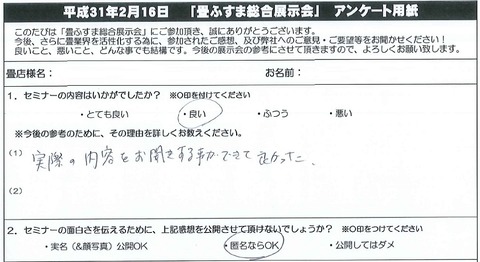 平成31年2月16日　「畳ふすま総合展示会」　アンケート用紙
このたびは「畳ふすま総合展示会」にご参加頂き、誠にありがとうございます。
今後、さらに畳業界を活性化する為に、参加されたご感想、及び弊社へのご意見・ご要望等をお聞かせください！
良いこと、悪いこと、どんな事でも結構です。今後の展示会の参考にさせて頂きますので、よろしくお願い致します。
畳店様名：　お名前：
1．セミナーの内容はいかがでしたか？　※〇印を付けてください
・とても良い　・良い　・ふつう　・悪い
※今後の参考のために、その理由を詳しくお教えください。
(1) 実際の内容をお聞きする事ができて良かった、
(2)
2．セミナーの面白さを伝えるために、上記感想を公開させて頂けないでしょうか？　※〇印をつけてください
・実名（&顔写真）公開OK　・匿名ならOK　・公開してはダメ